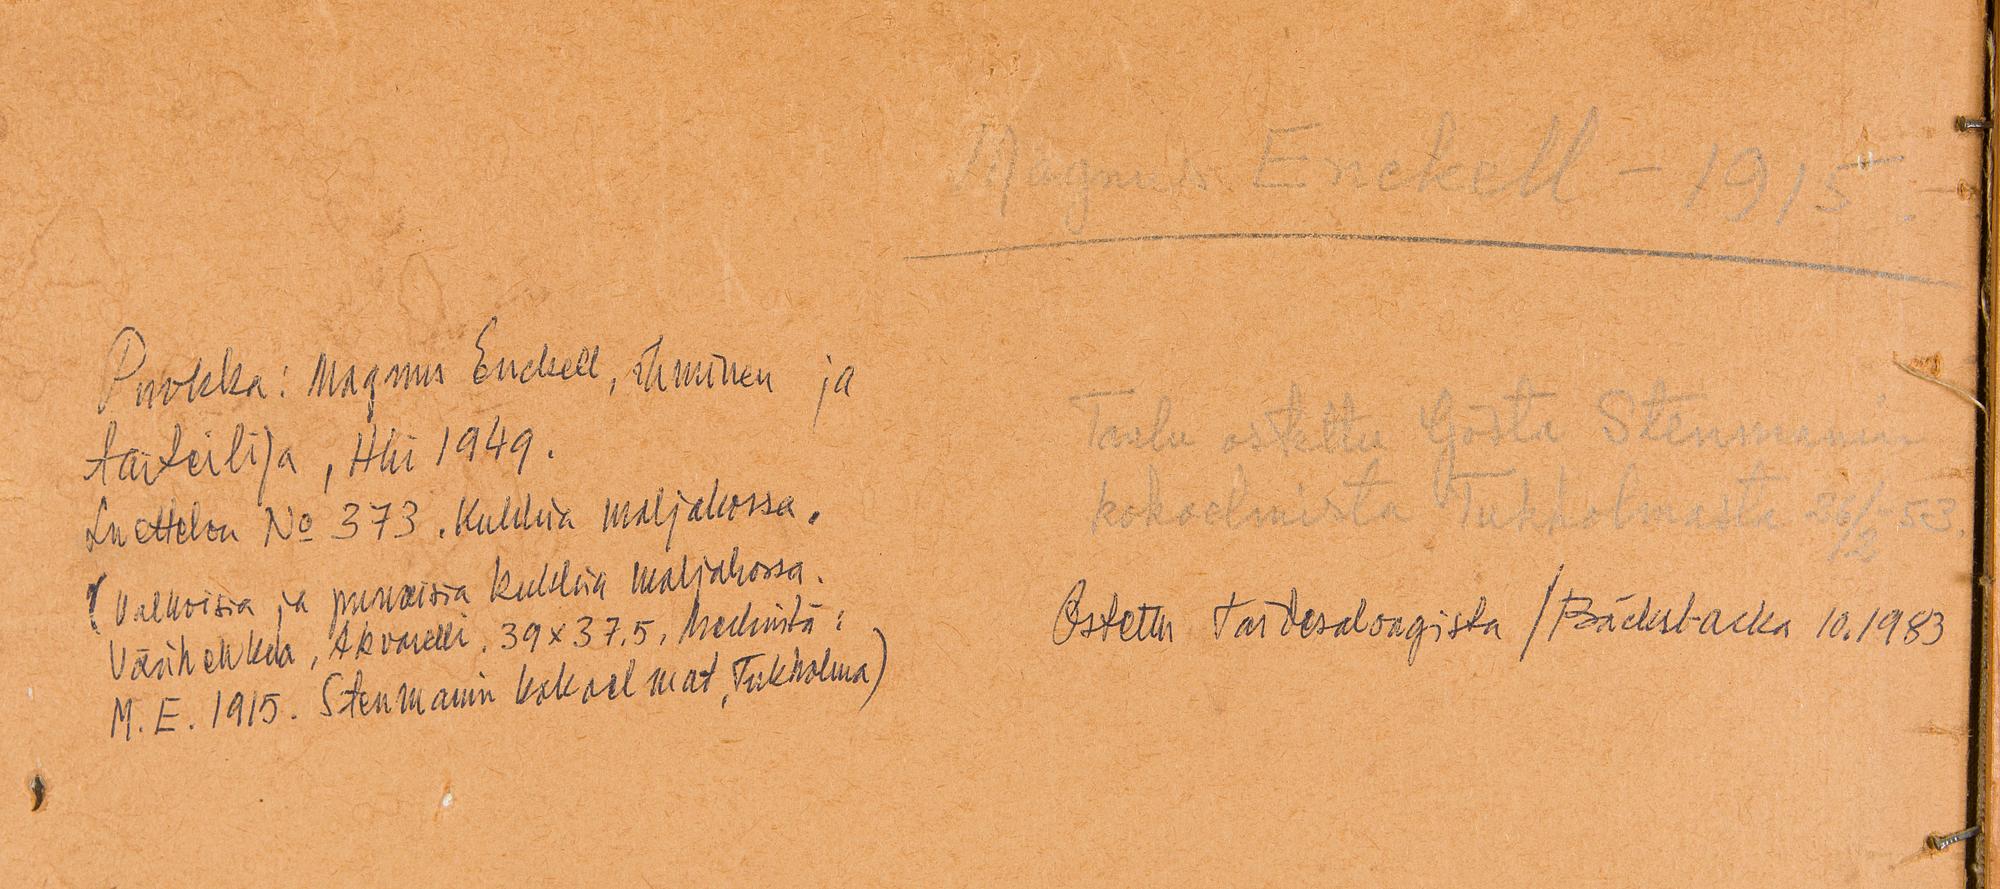 Magnus Enckell – 1915.
Puokka: Magnus Enckell, ihminen ja
taiteilija, Hki 1949.
Luettelon No 373. Kukkia maljakossa.
(Valkoisia ja punaisia kukkia maljakossa.
Värihehkua, Akvarelli. 39x37.5. Merkintä:
M. E. 1915. Stenmanin kokoelmat, Tukholma)
Taulu ostettu Gösta Stenmanin
kokoelmista Tukholmasta 26/2-53.
Ostettu Taidesalongista / Bäcksbacka 10.1983